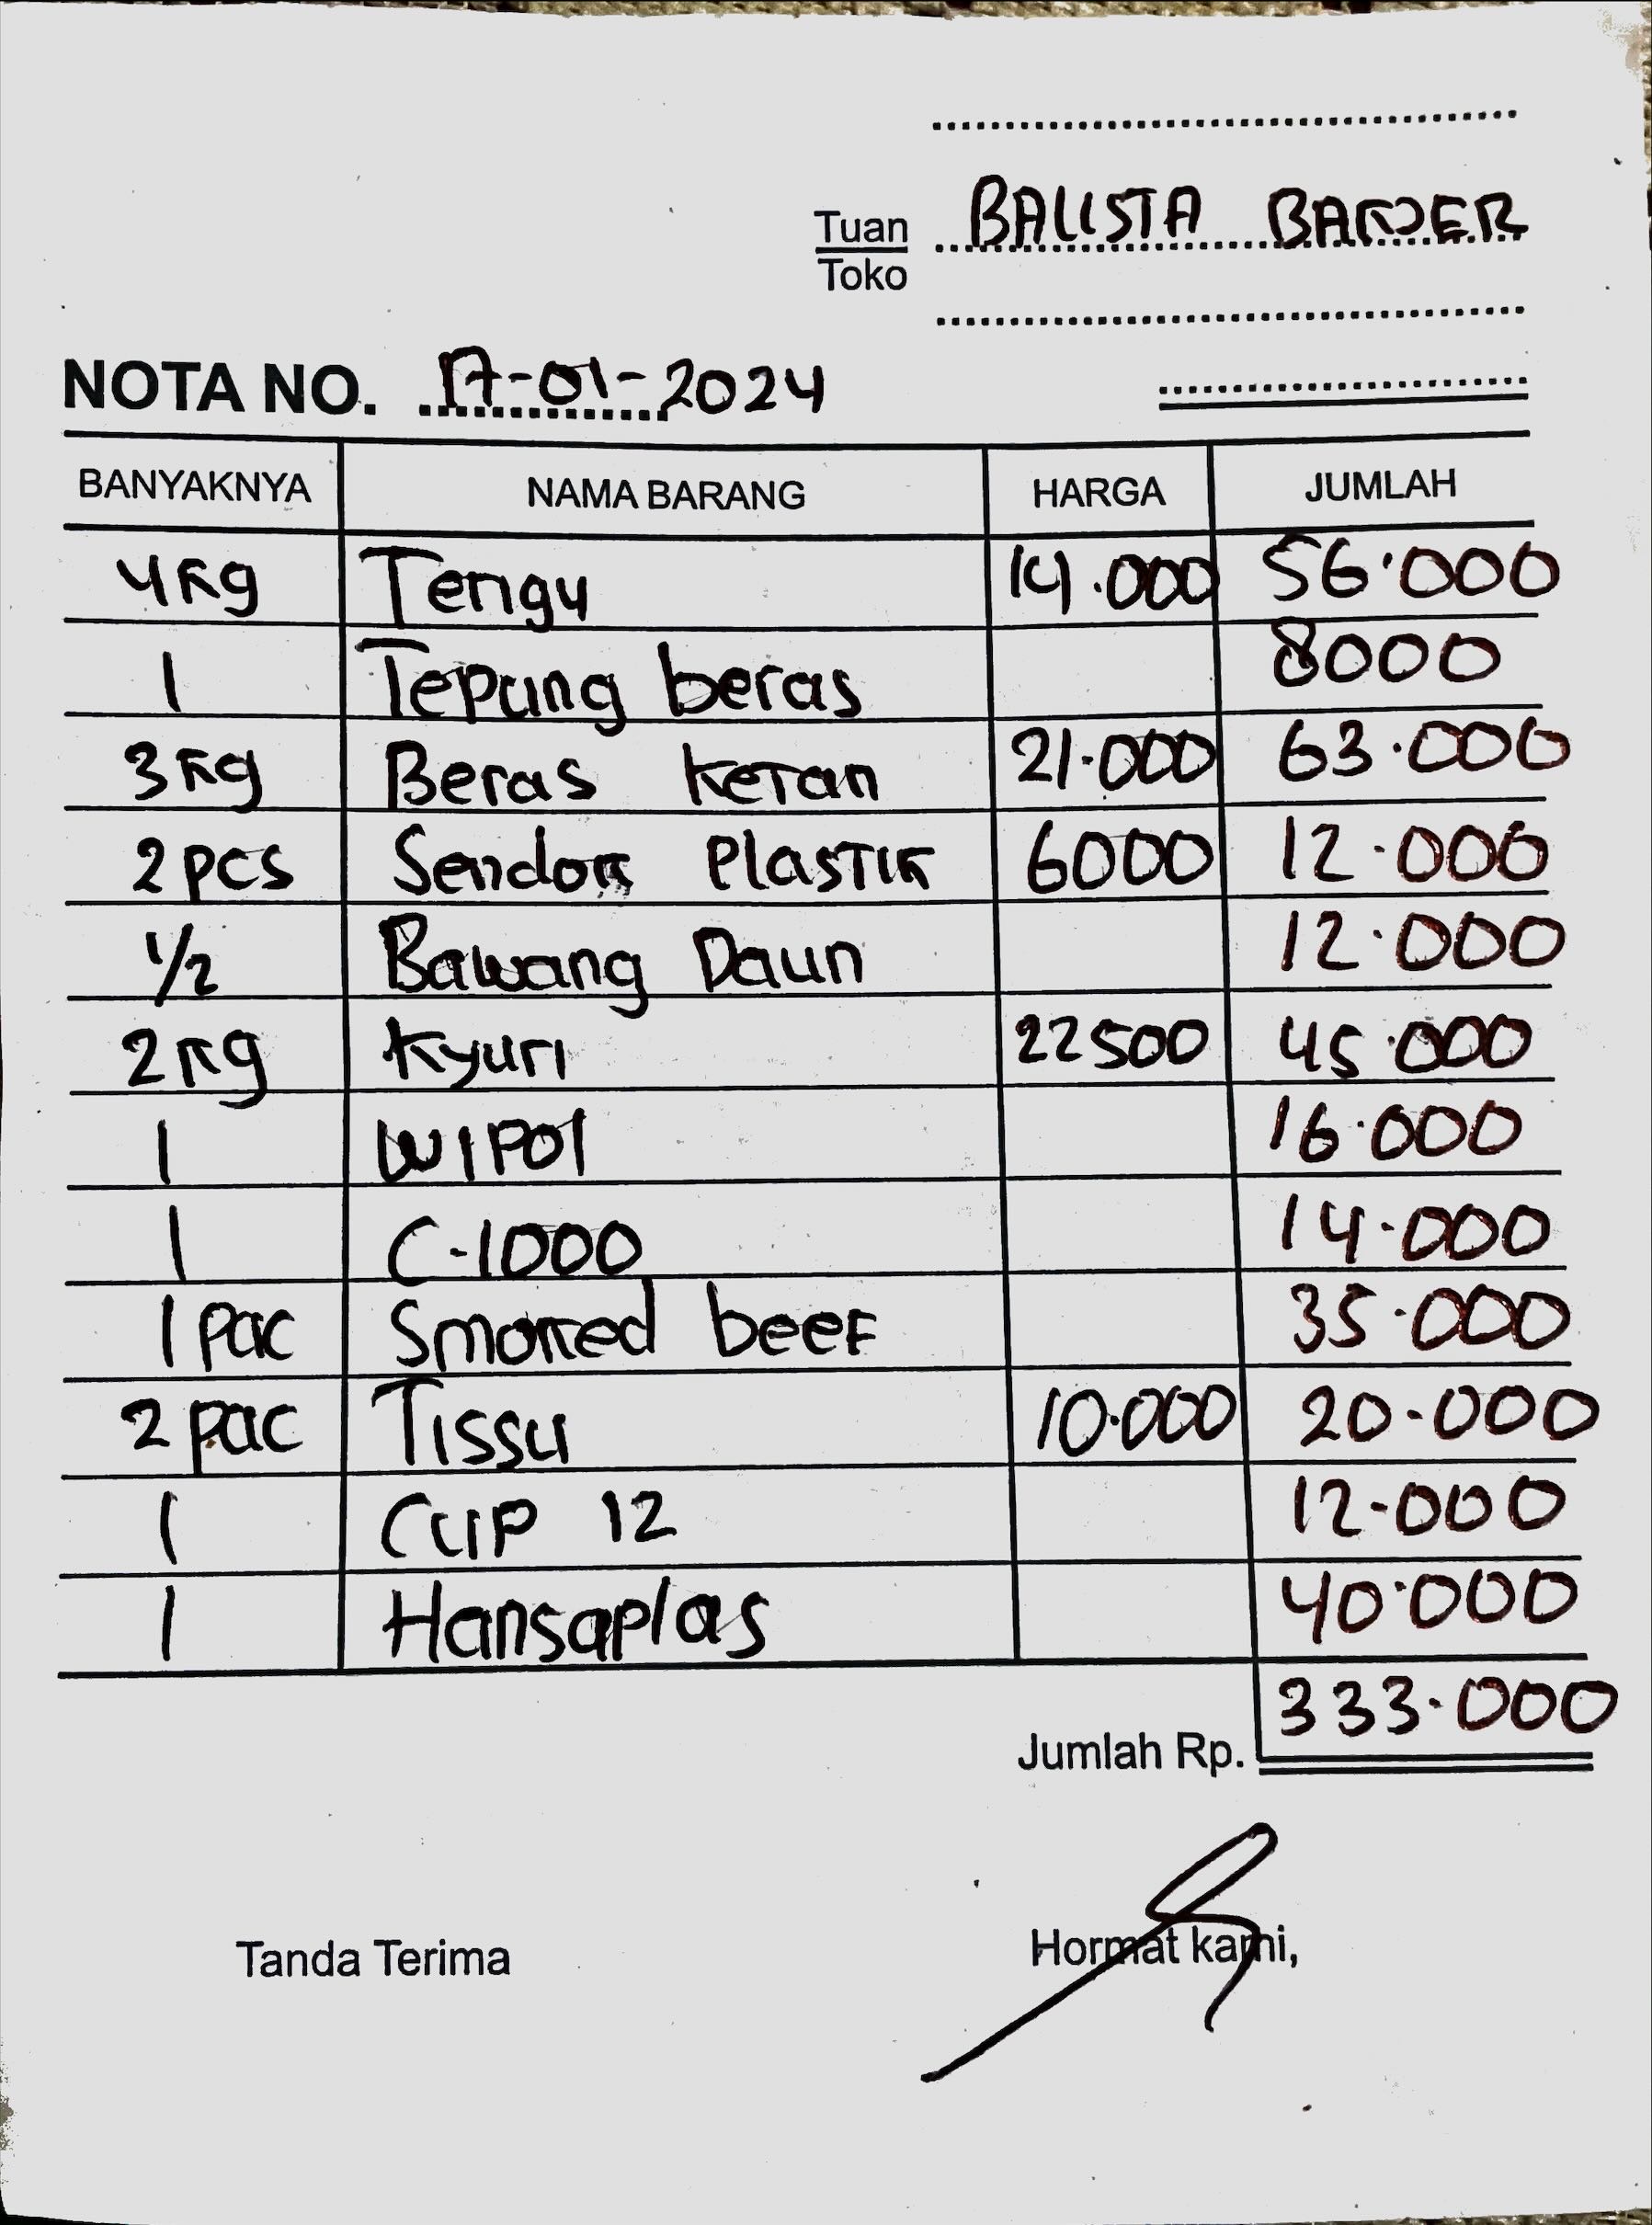 Tuan BALISTA BARDER
Toko
NOTA NO. 17-01-2024
BANYAKNYA NAMA BARANG HARGA JUMLAH
4Kg Terigu 14.000 56.000
1 Tepung beras 8000
3Kg Beras Ketan 21.000 63.000
2 pcs Sendok PlasTik 6000 12.000
1/2 Bawang Daun 12.000
2Kg Kyuri 22500 45.000
1 WIPOl 16.000
1 C-1000 14.000
1 pac Smoked beef 35.000
2 pac Tissu 10.000 20.000
1 CUP 12 12.000
1 Hansaplas 40.000
Jumlah Rp. 333.000
Tanda Terima Hormat kami,